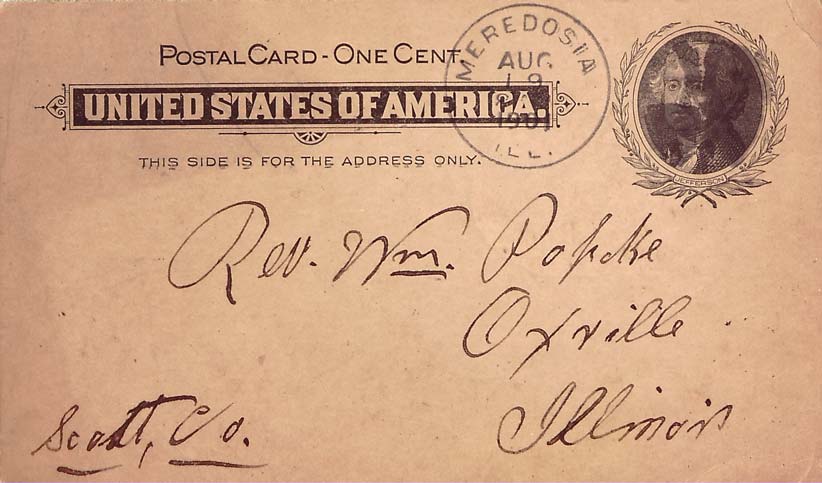 POSTAL CARD - ONE CENT.
UNITED STATES OF AMERICA.
THIS SIDE IS FOR THE ADDRESS ONLY.
MEREDOSIA
AUG
19
1901
ILL.
JEFFERSON
Rev. Wm. Popcke
Oxville
Scott, Co.
Illinois